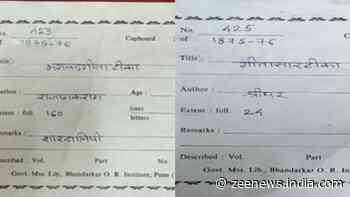 No. 423
of 1875-76
Cupboard :
Title) :
भगवद्गीताटीका
Author : राजानकराम
Age :
Extent : foll. 160
lines
letters
Remarks : शारदालिपी
Described : Vol. Part No
Govt. Mss. Lib., Bhandarkar O. R. Institute, Pune (
No. 425
of 1875-76
Title) :
गीतासारटीका
Author : श्रीधर
Extent : foll. 24
Remarks :
Described : Vol. Part
Govt. Mss. Lib., Bhandarkar O. R. Institute,
zeenews.india.com